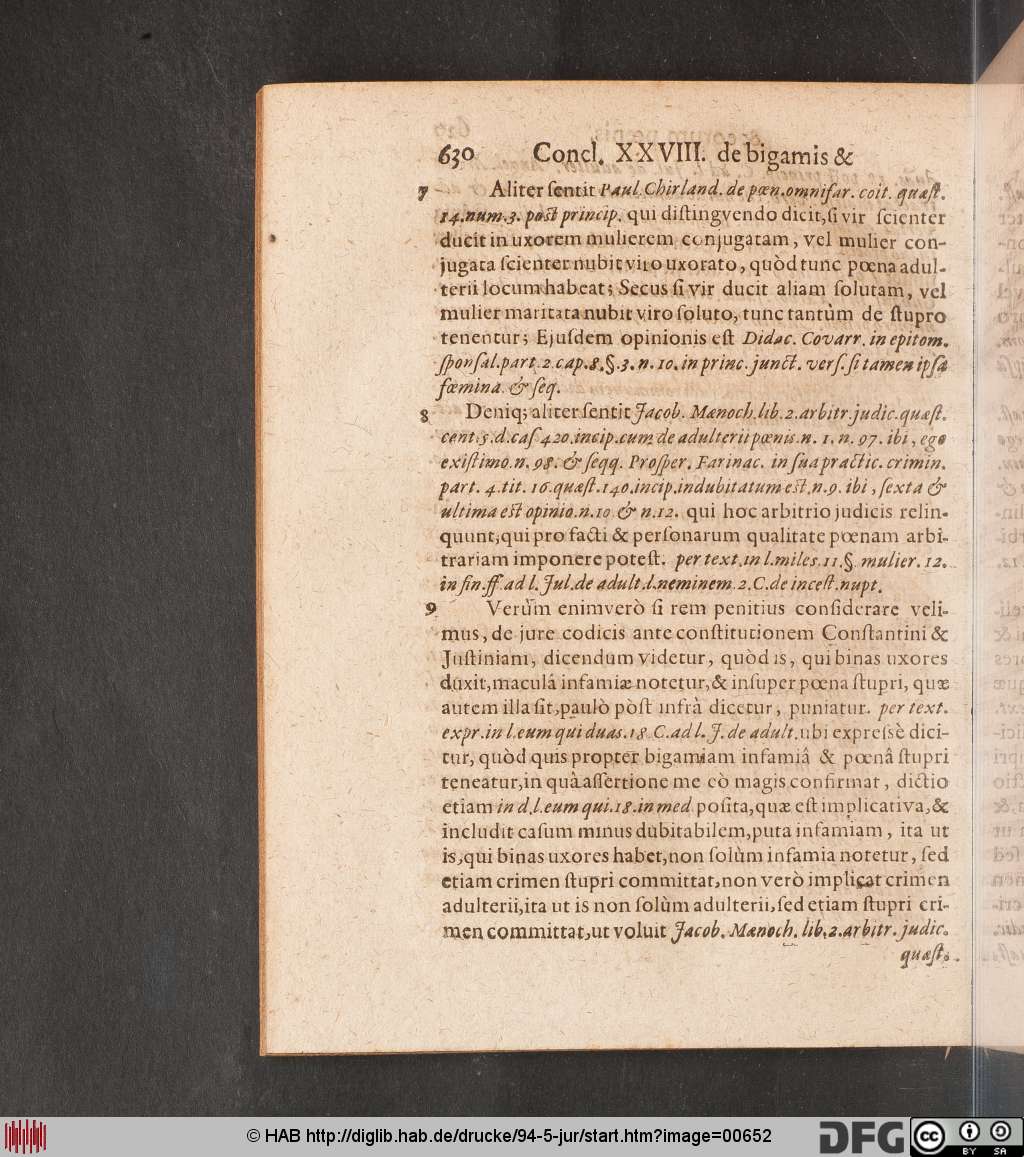 630 Concl. XXVIII. de bigamis &
7 Aliter ſentit Paul. Chirland. de pœn. omnifar. coit. quæſt.
14. num. 3. poſt princip. qui diſtingvendo dicit, ſi vir ſcienter
ducit in uxorem mulierem conjugatam, vel mulier con-
jugata ſcienter nubit viro uxorato, quòd tunc pœna adul-
terii locum habeat; Secus ſi vir ducit aliam ſolutam, vel
mulier maritata nubit viro ſoluto, tunc tantùm de ſtupro
tenentur; Ejuſdem opinionis eſt Didac. Covarr. in epitom.
ſponſal. part. 2. cap. 8. §. 3. n. 10. in princ. junct. verſ. ſi tamen ipſa
fœmina. & ſeq.
8 Deniq; aliter ſentit Jacob. Mænoch. lib. 2. arbitr. judic. quæſt.
cent. 5. d. caſ 420. incip. cum de adulterii pœnis. n. 1. n. 97. ibi, ego
exiſtimo. n. 98. & ſeqq. Proſper. Farinac. in ſua practic. crimin.
part. 4. tit. 16. quæſt. 140. incip. indubitatum eſt, n. 9. ibi, ſexta &
ultima eſt opinio. n. 10 & n. 12. qui hoc arbitrio judicis relin-
quunt, qui pro facti & perſonarum qualitate pœnam arbi-
trariam imponere poteſt. per text. in l. miles. 11. §. mulier. 12.
in fin. ff. ad l. Jul. de adult. l. neminem. 2. C. de inceſt. nupt.
9 Verùm enimverò ſi rem penitius conſiderare veli-
mus, de jure codicis ante conſtitutionem Conſtantini &
Juſtiniani, dicendum videtur, quòd is, qui binas uxores
duxit, maculâ infamiæ notetur, & inſuper pœna ſtupri, quæ
autem illa ſit, paulò pòſt infrà dicetur, puniatur. per text.
expr. in l. eum qui duas. 18 C. ad l. J. de adult. ubi expreſsè dici-
tur, quòd quis propter bigamiam infamiâ & pœnâ ſtupri
teneatur, in quà aſſertione me eò magis confirmat, dictio
etiam in d. l. eum qui. 18. in med poſita, quæ eſt implicativa, &
includit caſum minus dubitabilem, puta infamiam, ita ut
is, qui binas uxores habet, non ſolùm infamia notetur, ſed
etiam crimen ſtupri committat, non verò implicat crimen
adulterii, ita ut is non ſolùm adulterii, ſed etiam ſtupri cri-
men committat, ut voluit Jacob. Mænoch. lib. 2. arbitr. judic.
quæſt.
© HAB http://diglib.hab.de/drucke/94-5-jur/start.htm?image=00652
DFG cc BY SA